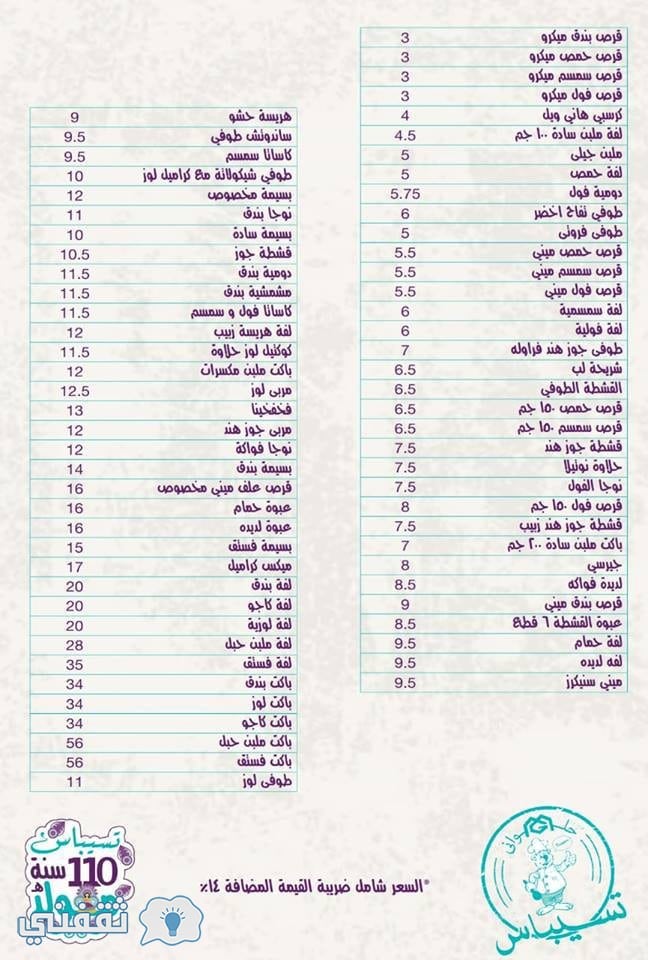 قرص بندق ميكرو 3
قرص حمص ميكرو 3
قرص سمسم ميكرو 3
قرص فول ميكرو 3
كرسبي هاني ويل 4
لفة ملبن سادة ١٠٠ جم 4.5
ملبن جيلى 5
لفة حمص 5
دومية فول 5.75
طوفي تفاح اخضر 6
طوفى فروتى 5
قرص حمص ميني 5.5
قرص سمسم ميني 5.5
قرص فول ميني 5.5
لفة سمسمية 6
لفة فولية 6
طوفى جوز هند فراوله 7
شريحة لب 6.5
القشطة الطوفي 6.5
قرص حمص ١٥٠ جم 6.5
قرص سمسم ١٥٠ جم 6.5
قشطة جوز هند 7.5
حلاوة نوتيلا 7.5
نوجا الفول 7.5
قرص فول ١٥٠ جم 8
قشطة جوز هند زبيب 7.5
باكت ملبن سادة ٢٠٠ جم 7
جيرسي 8
لديدة فواكه 8.5
قرص بندق ميني 9
عبوة القشطة ٦ قطع 8.5
لفة حمام 9.5
لفه لديده 9.5
ميني سنيكرز 9.5
هريسة حشو 9
ساندوتش طوفي 9.5
كاساتا سمسم 9.5
طوفي شيكولاتة مع كراميل لوز 10
بسيمة مخصوص 12
نوجا بندق 11
بسيمة سادة 10
قشطة جوز 10.5
دومية بندق 11.5
مشمشية بندق 11.5
كاساتا فول و سمسم 11.5
لفة هريسة زبيب 12
كوكتيل لوز حلاوة 11.5
باكت ملبن مكسرات 12
مربى لوز 12.5
فخفخينا 13
مربى جوز هند 12
نوجا فواكة 12
بسيمة بندق 14
قرص علف ميني مخصوص 16
عبوة حمام 16
عبوة لديده 16
بسيمة فستق 15
ميكس كراميل 17
لفة بندق 20
لفة كاجو 20
لفة لوزية 20
لفة ملبن حبل 28
لفة فستق 35
باكت بندق 34
باكت لوز 34
باكت كاجو 34
باكت ملبن حبل 56
باكت فستق 56
طوفى لوز 11
*السعر شامل ضريبة القيمة المضافة ١٤٪
حلوانى
تسيباس
تسيباس
110 سنة
ثقفني